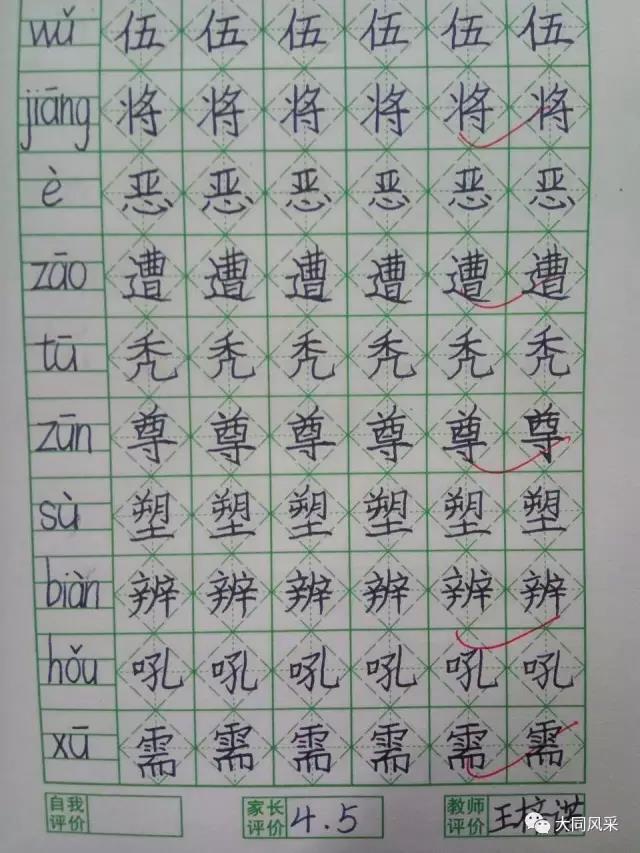 wǔ 伍 伍 伍 伍 伍 伍
jiāng 将 将 将 将 将 将
è 恶 恶 恶 恶 恶 恶
zāo 遭 遭 遭 遭 遭 遭
tū 秃 秃 秃 秃 秃 秃
zūn 尊 尊 尊 尊 尊 尊
sù 塑 塑 塑 塑 塑 塑
biàn 辨 辨 辨 辨 辨 辨
hǒu 吼 吼 吼 吼 吼 吼
xū 需 需 需 需 需 需
自我评价 家长评价 4.5 教师评价 王
大同风采